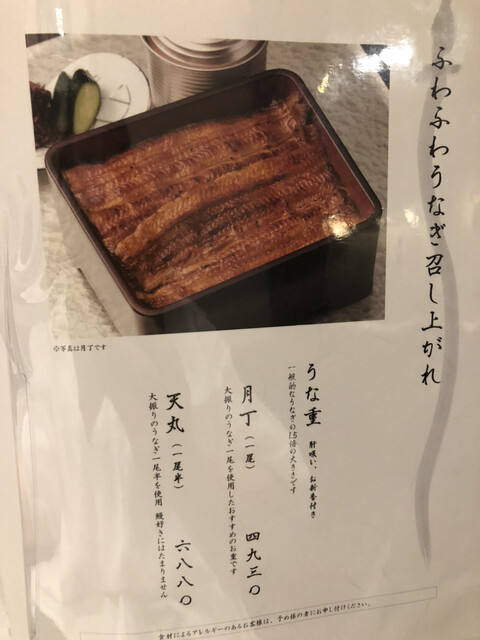 ふわふわうなぎ召し上がれ
※写真は月丁です
うな重 肝吸い、お新香付き
一般的なうなぎの1.5倍の大きさです
月丁(一尾) 四九三〇
大振りのうなぎ一尾を使用したおすすめのお重です
天丸(一尾半) 六八八〇
大振りのうなぎ一尾半を使用 鰻好きにはたまりません
食材によるアレルギーのあるお客様は、予め係の者にお申し付けください。